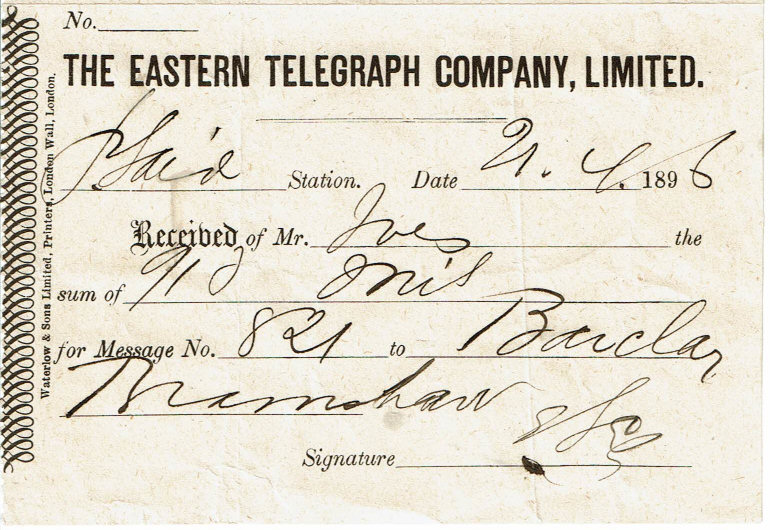 No.
THE EASTERN TELEGRAPH COMPANY, LIMITED.
P. Said Station. Date 21. 4. 1896
Received of Mr. Ives the
sum of 91 mils
for Message No. 821 to Barclay
Bramshaw
Signature
Waterlow & Sons Limited, Printers, London Wall, London.